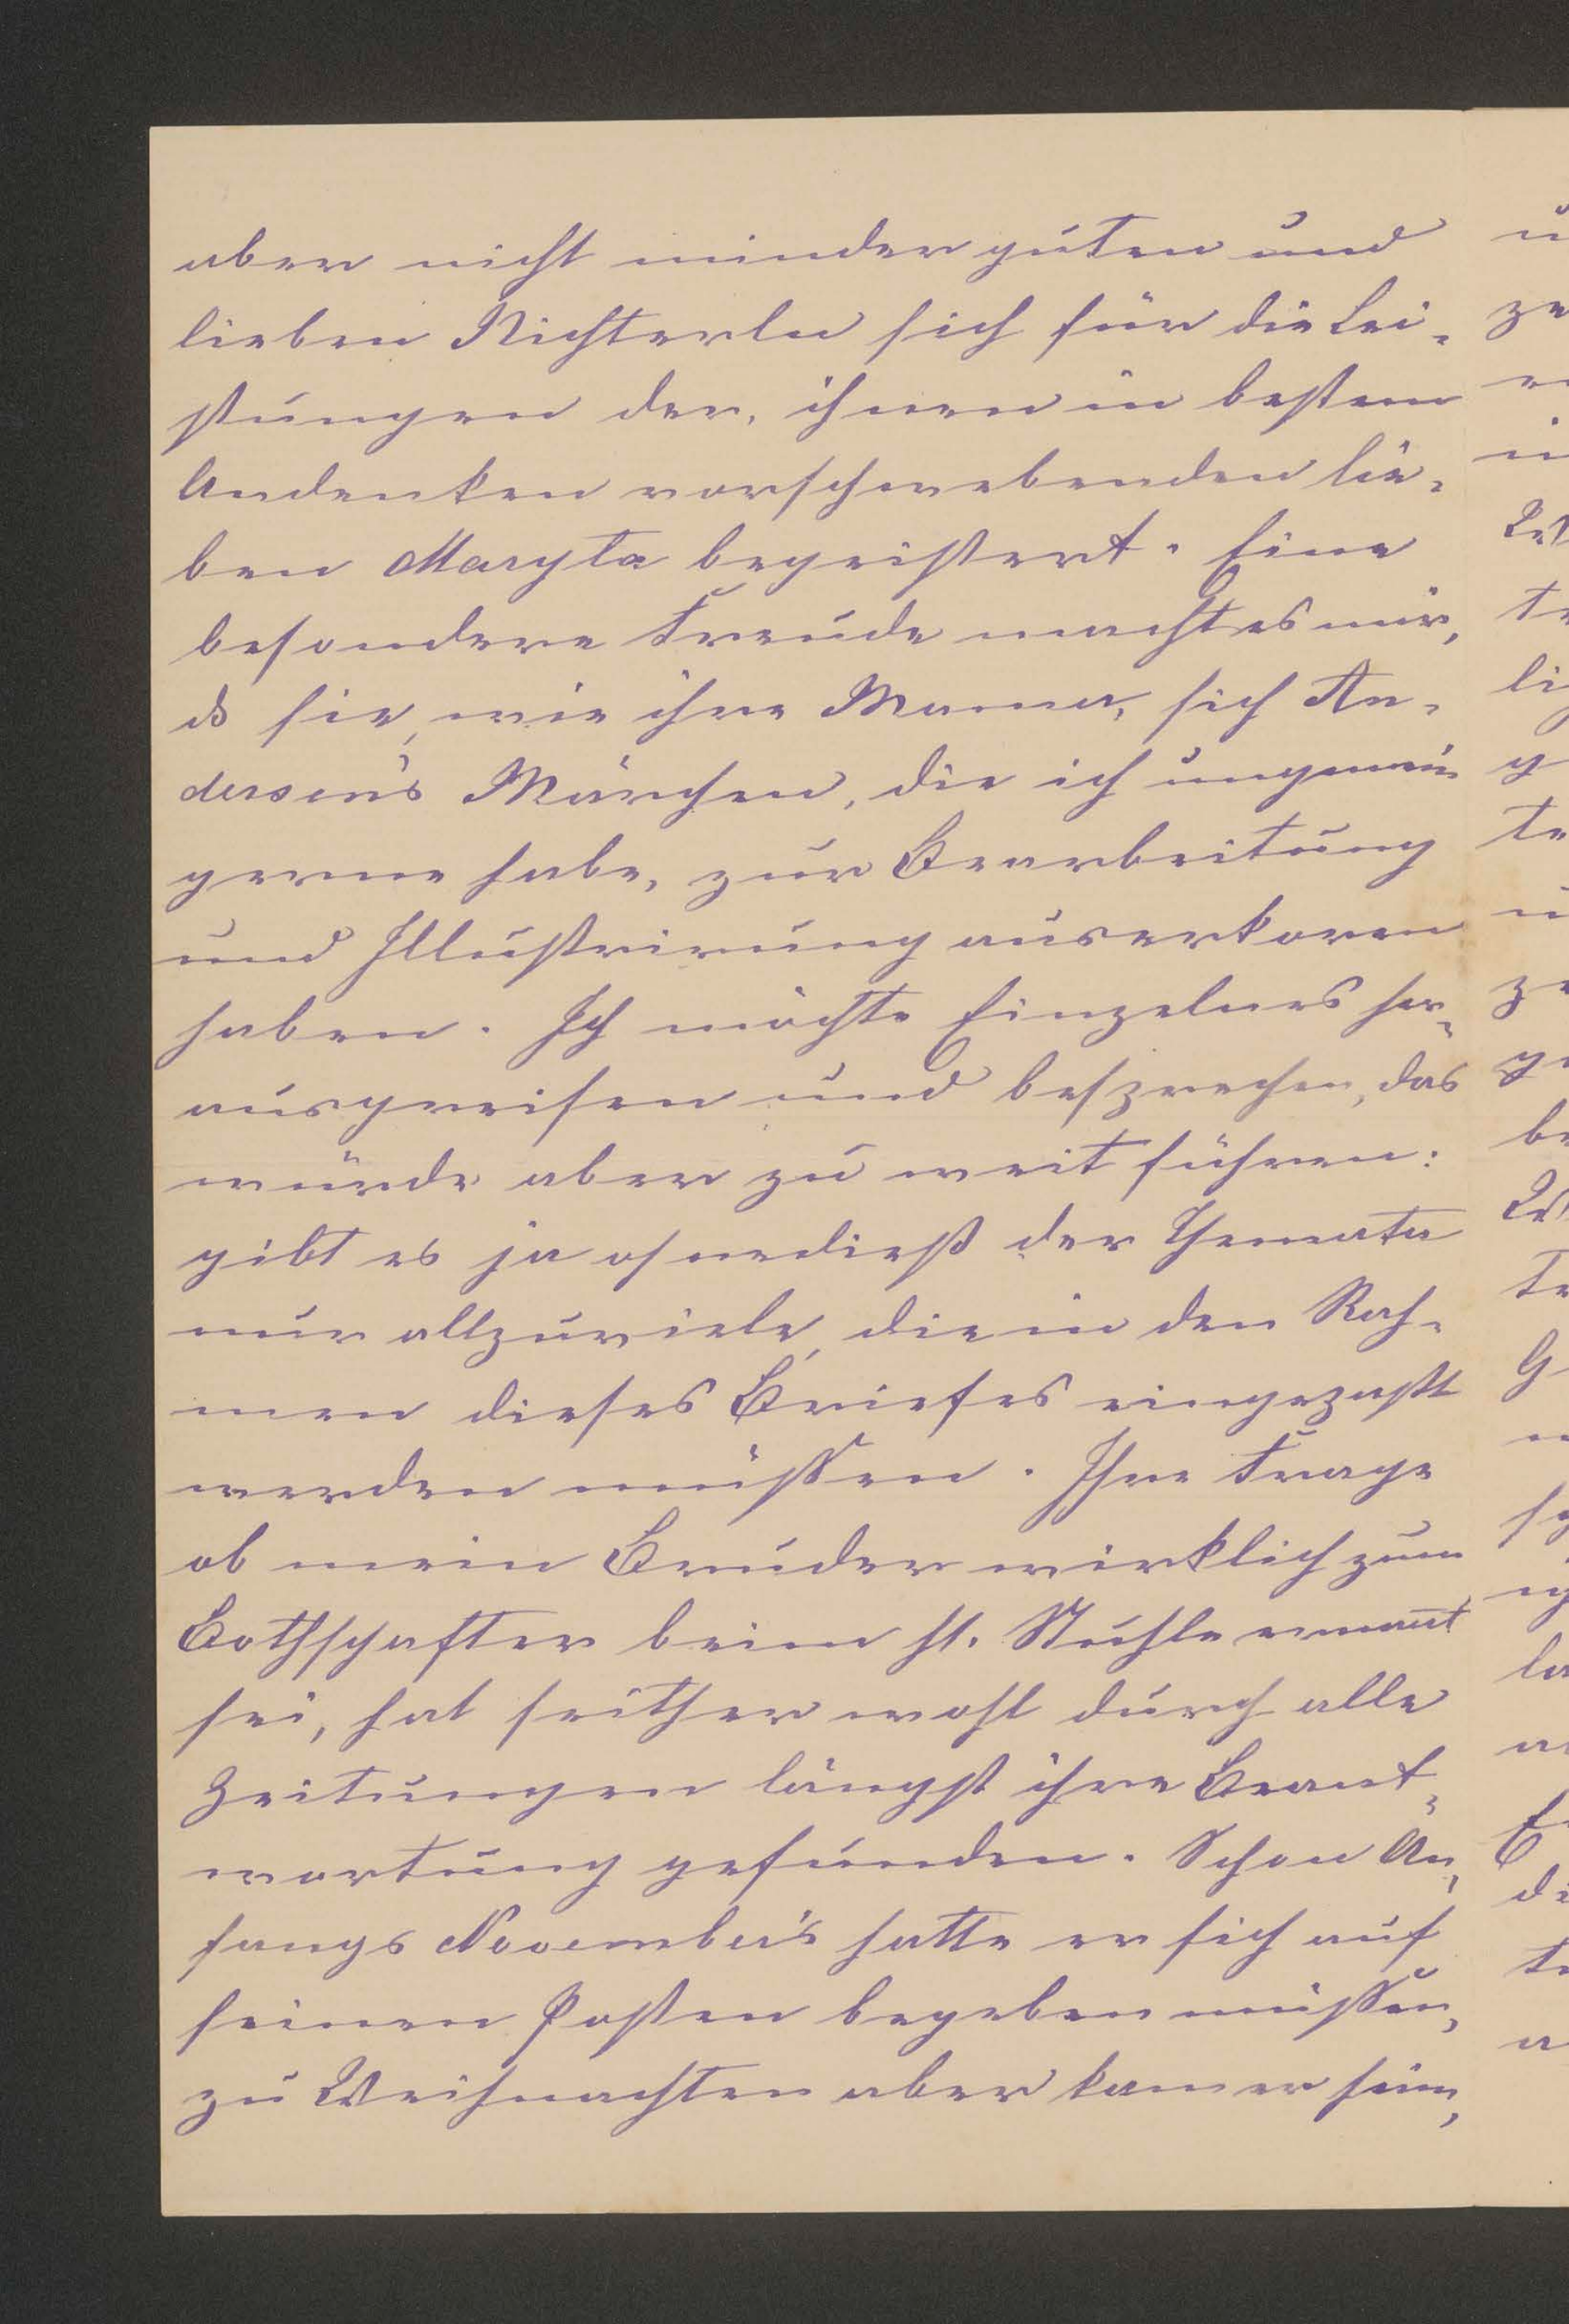 aber nicht minder guten und
lieben Richterln sich für die Lei-
stungen der, ihnen in bestem
Andenken vorschwebenden lie-
ben Maryta begeistert. Eine
besondere Freude macht es mir,
ds sie, wie ihre Mama, sich An-
dersen's Märchen, die ich ungemein
gerne habe, zur Bearbeitung
und Illustrirung auserkoren
haben. Ich möchte Einzelnes her-
ausgreifen und besprechen, das
würde aber zu weit führen:
gibt es ja ohnedieß der Themata
nur allzuviele, die in den Rah-
men dieses Briefes eingepaßt
werden müssen. Ihre Frage
ob mein Bruder wirklich zum
Bothschafter beim hl. Stuhle ernant
sei, hat seither wohl durch alle
Zeitungen längst ihre Beant-
wortung gefunden. Schon An-
fangs November's hatte er sich auf
seinen Posten begeben müssen,
zu Weihnachten aber kam er heim,